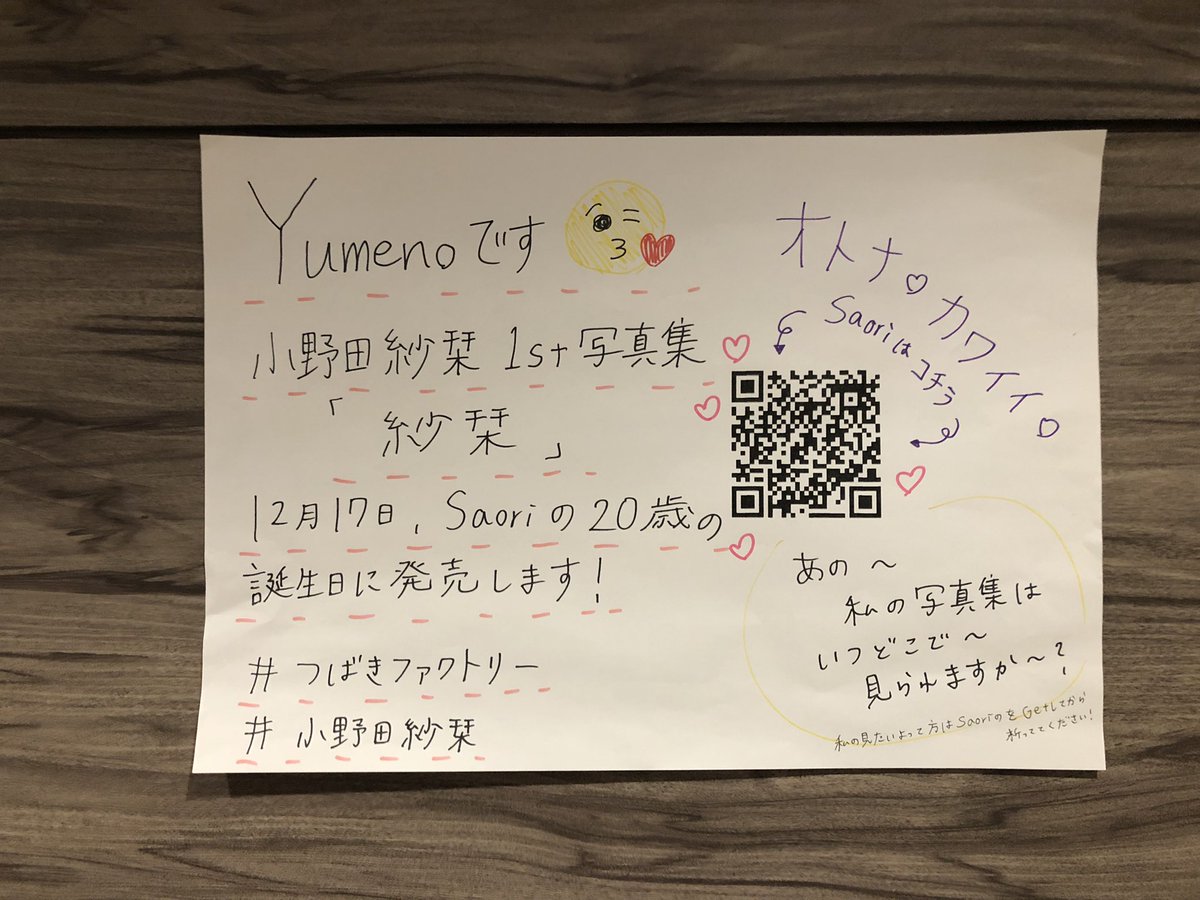 Yumenoです
小野田紗栞 1st写真集
「紗栞」
12月17日, Saoriの20歳の
誕生日に発売します!
# つばきファクトリー
# 小野田紗栞
オトナ。カワイイ。
Saoriはコチラ
あの〜
私の写真集は
いつどこで〜
見られますか〜?
私の見たいよって方はSaoriのをGetしてから
祈っててください!